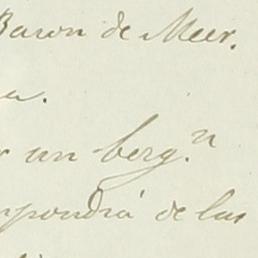 Baron de Meer.
a.
r un berg.n
mpondrá de las